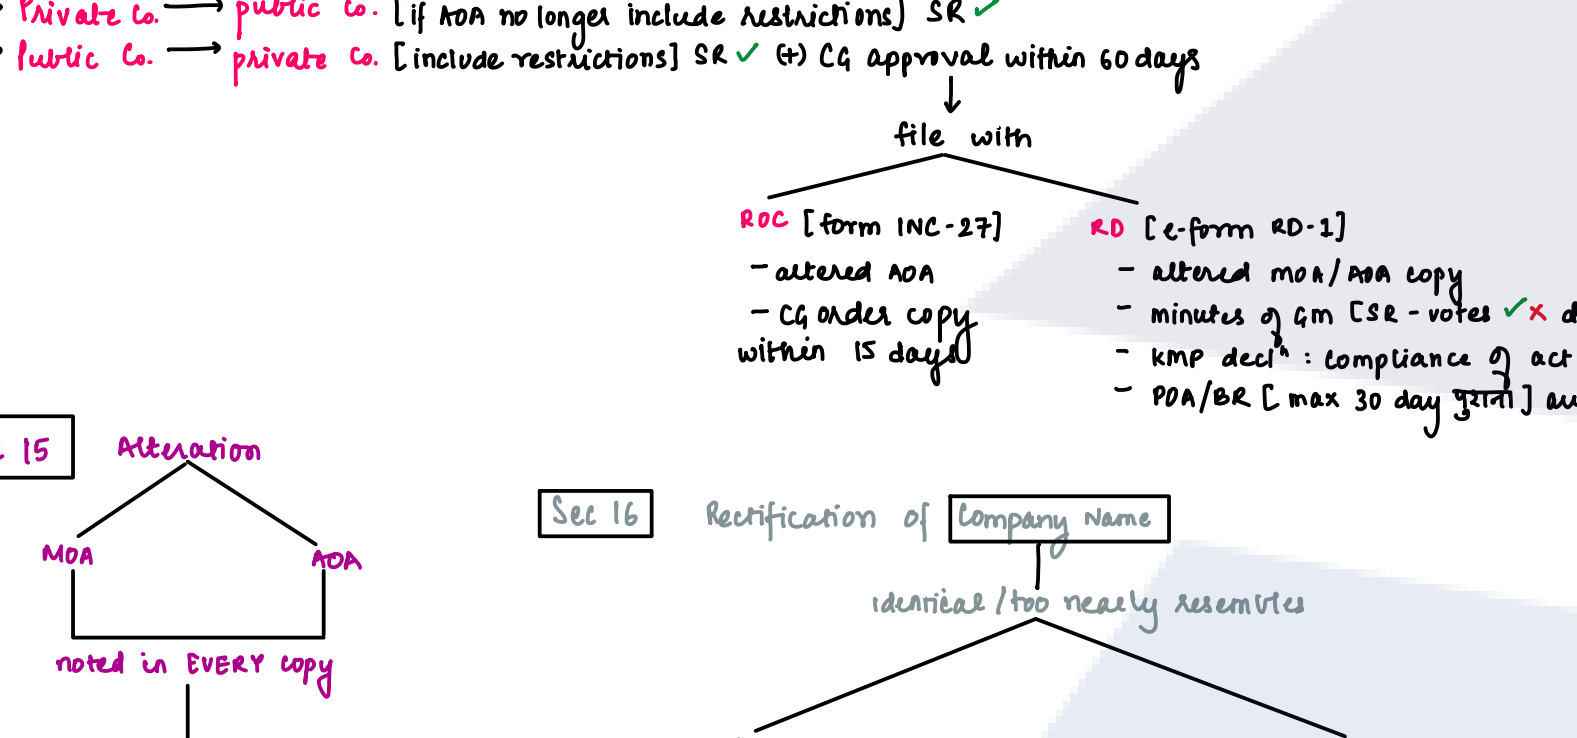 Private Co. → public Co. [if AOA no longer include restrictions] SR ✓
Public Co. → private Co. [include restrictions] SR ✓ (+) CG approval within 60 days
file with
ROC [form INC-27]
- altered AOA
- CG order copy
within 15 days
RD [e-form RD-1]
- altered MOA/AOA copy
- minutes of GM [SR - votes ✓ ×
- KMP declⁿ : compliance of act
- POA/BR [max 30 day पुराना]
15
Alteration
MOA
AOA
noted in EVERY copy
Sec 16
Rectification of Company Name
identical / too nearly resembles